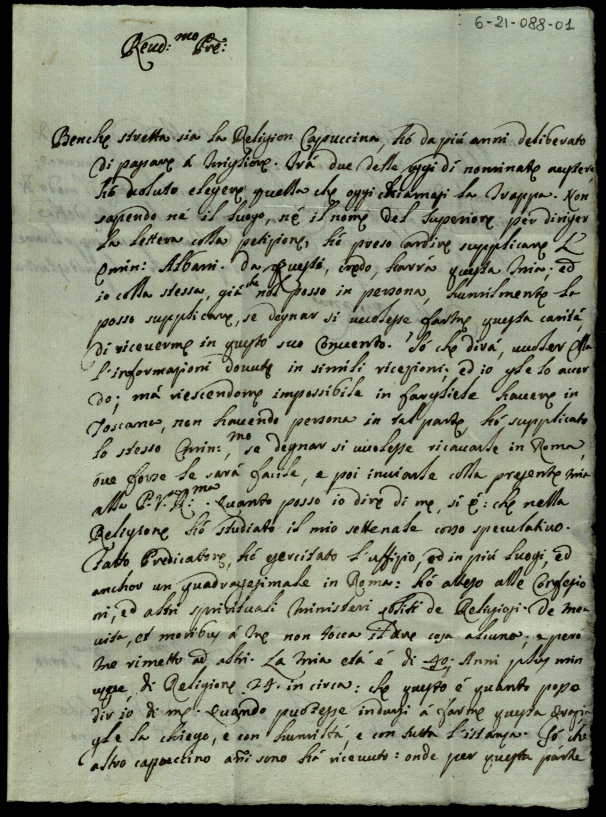 6-21-088-01
Reud:mo Pre:
Benche stretta sia la Religion Capuccina, hó da piú anni deliberato
di passare á migliore. Trá due della oggi dí nominate austere,
hó voluto elegere quella che oggi chiamasi la Trappa. Non
sapendo né il luogo, né il nome del Superiore per diriger
la lettera colla petizione, hó preso ardire supplicare L'
Emin: Albani. da questi, credo, haverá questa mia: ed
io colla stessa, giá che nol posso in persona, humilmente la
posso supplicare, se degnar si volesse farme questa caritá,
di ricevermi in questo suo Convento. Só che dirá, voler Ella
l'informazioni dovute in simili ricezioni; ed io gle lo accor
do; má riescendomi impossibile in fargliele havere in
Toscana, non havendo persona in tal parte, hó supplicato
lo stesso Emin:mo, se degnar si volesse ricavarle in Roma,
ove forze le sará facile, e poi inviarle colla presente mia
alla P. V. R:ma. Quanto posso io dire di me, si é: che nella
Religione hó studiato il mio settenale corso speculativo.
Fatto Predicatore, hó esercitato l'uffizio, ed in piú luogi, ed
anchor un quadragesimale in Roma: hó atteso alle Confesio
ni, ed altri spirituali ministeri soliti de Religiosi. De mea
vita, et moribus á me non tocca il dire cosa alcuna; e peró
me rimetto ad altri. La mia etá é di 40. Anni plus min
usve, di Religione 24. in circa: che questo é quanto posso
dir io di me. Quando puolesse indursi á farme questa grazia
gle la chiego, e con humiltá, e con tutta l'istanza. Só che
altro capuccino añi sono há ricevuto: onde per questa parte